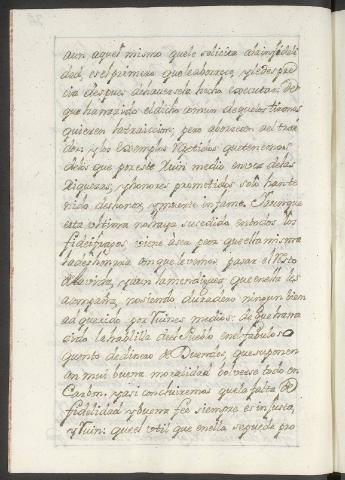 aun aquel mismo que le solicita a la infideli
dad, es el primero que le aborrece, y le despre
cia despues de haverselo hecho executar: de
que ha nazido el dicho comun de que los tiranos
quieren la traiccion, pero aborrecen al trai
dor: y los exemplos repetidos que tenemos
de los que por este ruin medio en vez de las
riquezas, y honores prometidos solo han te
nido deshonor, y muerte infame. Y aunque
esta ultima no haya sucedido en todos los
fidefragos, viene a ser peor que ella misma
la deshonrra con que le vemos pasar el resto
de la vida, y aun la mendiguez, que en ella les
acompaña, no siendo duradero ningun bien
ad querido por ruines medios: de que ha na
cido la hablilla del Pueblo en el fabuloso
quento de dinero de Duendes, que suponen
con mui buena moralidad bolverse todo en
Carbon. y asi concluiremos que la falta de
fidelidad y buena fee siempre es injusta,
y ruin: que el util que en ella se puede pro